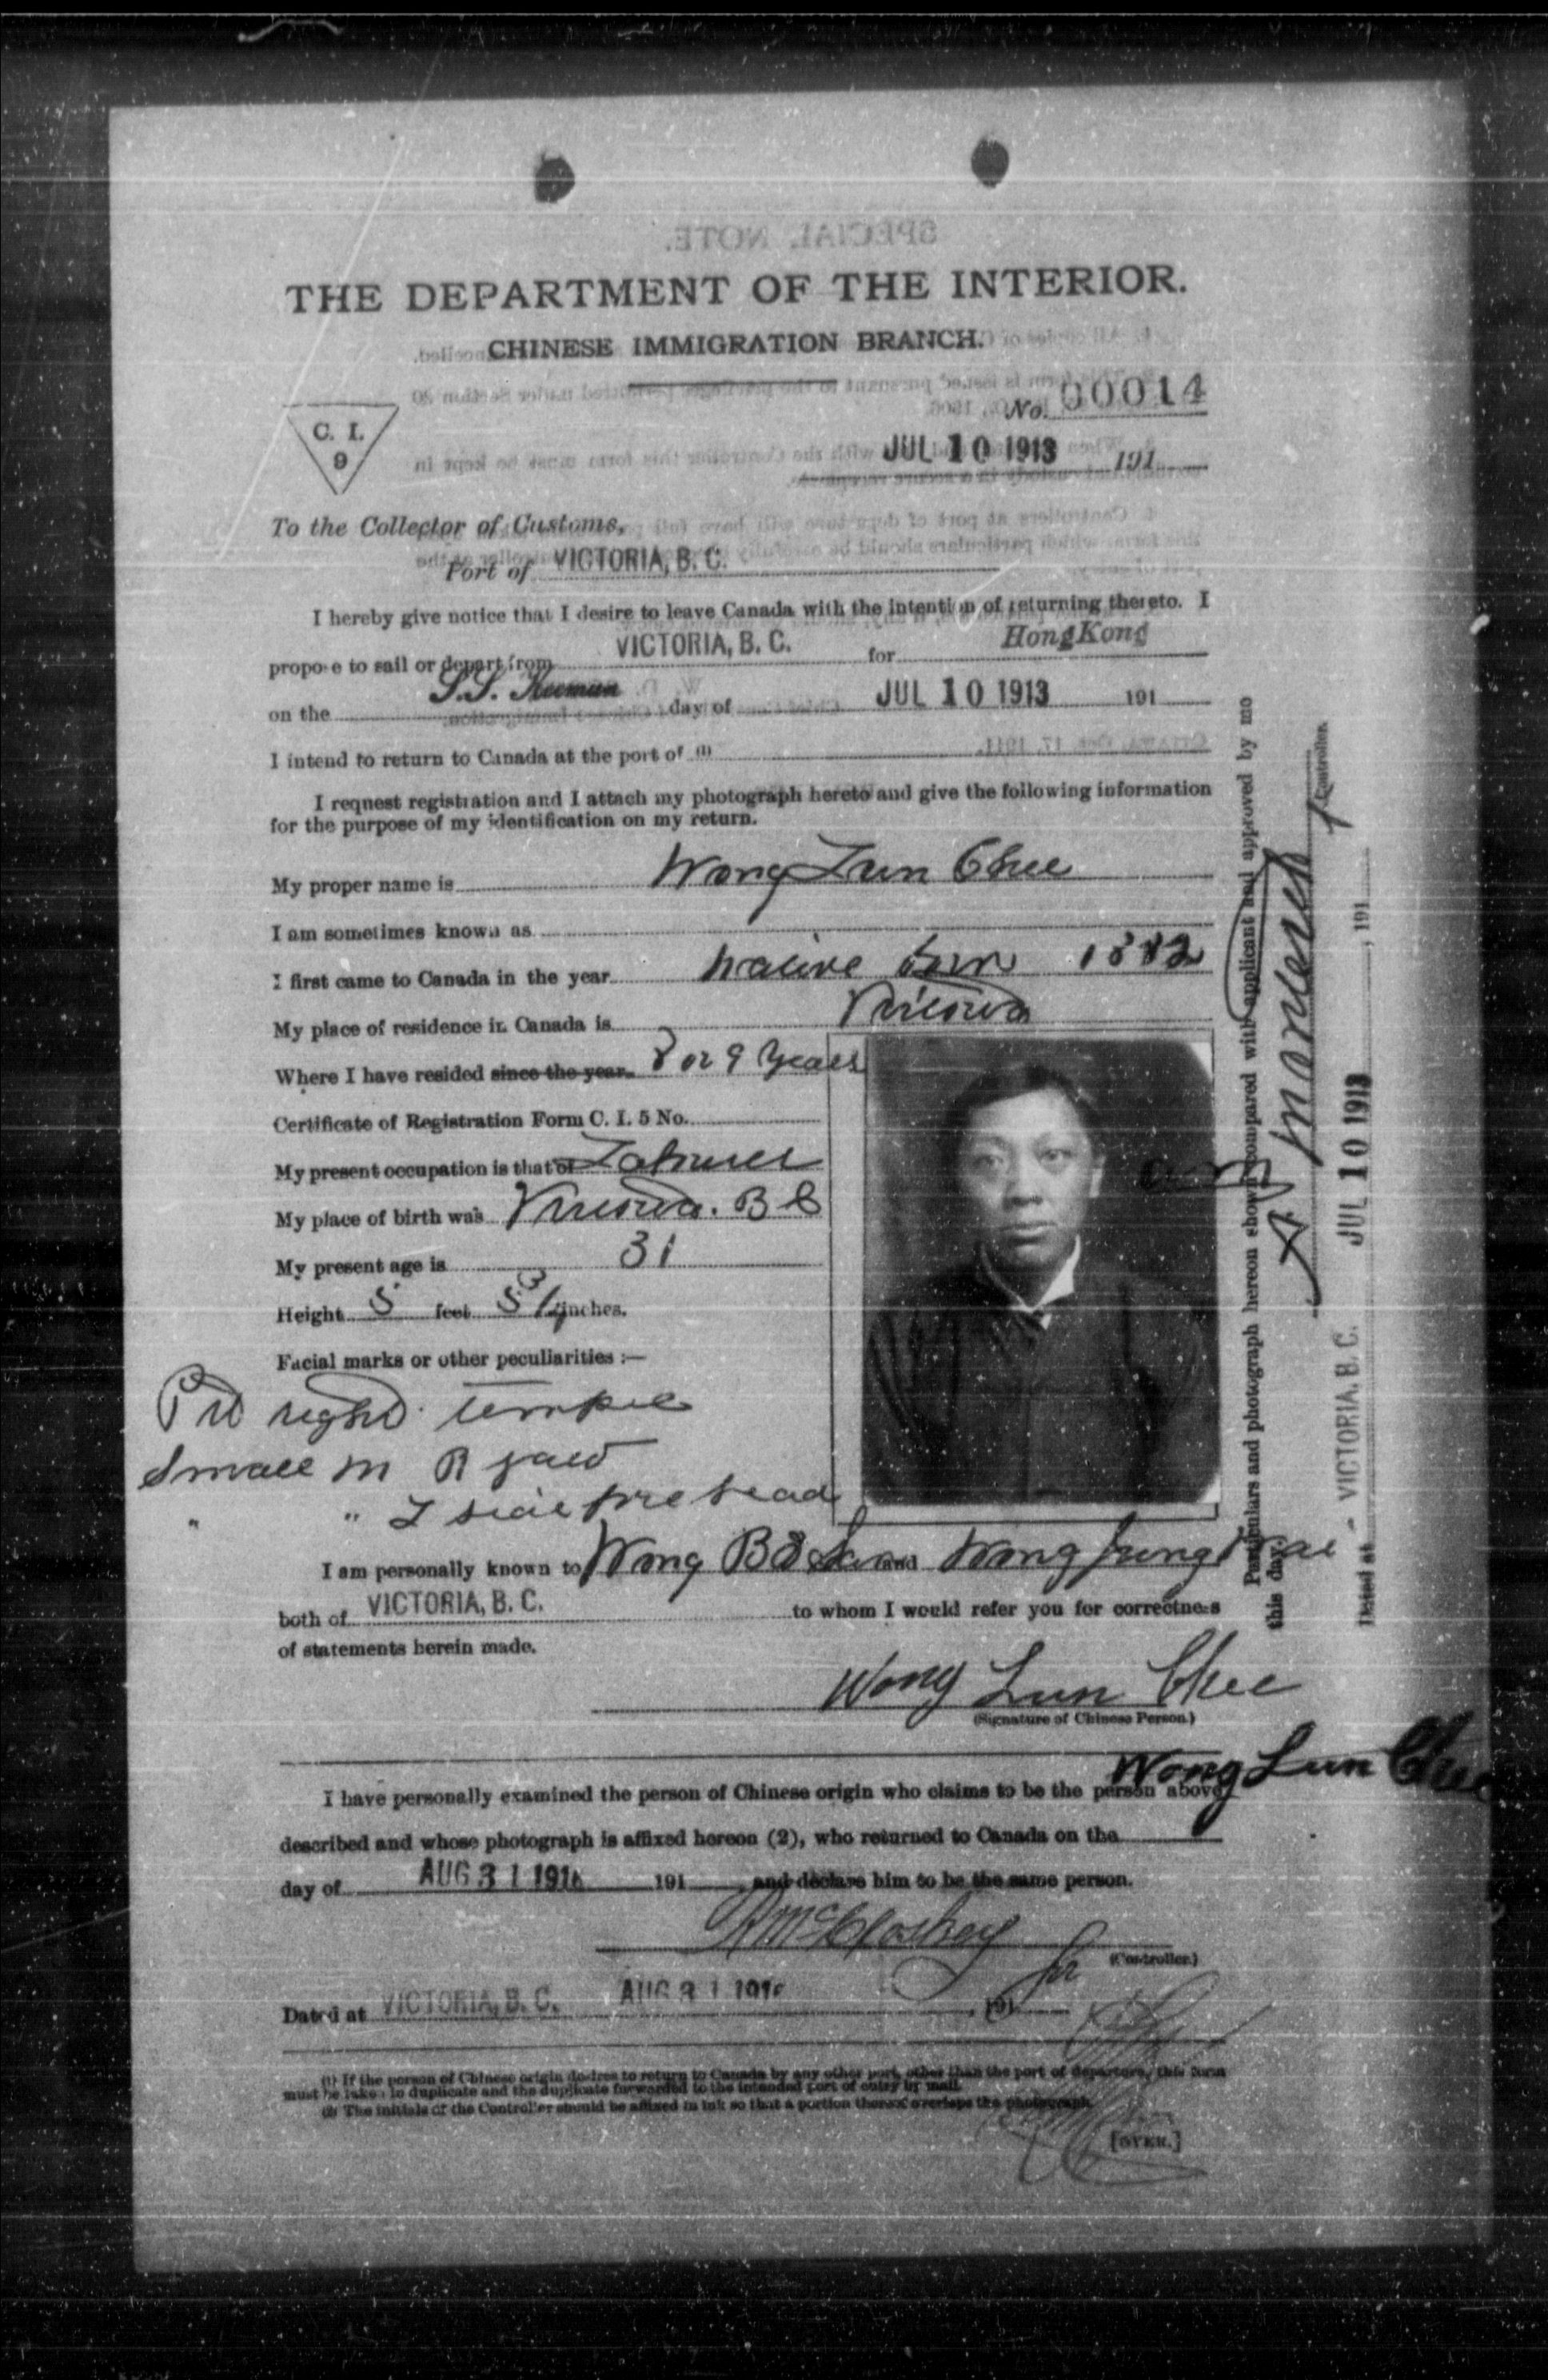 SPECIAL NOTE.
THE DEPARTMENT OF THE INTERIOR.
CHINESE IMMIGRATION BRANCH.
No. 00014
C. I.
9
JUL 10 1913 191
To the Collector of Customs,
Port of VICTORIA, B. C.
I hereby give notice that I desire to leave Canada with the intention of returning thereto. I
propose to sail or depart from VICTORIA, B. C. for HongKong
on the S.S. day of JUL 10 1913 191
I intend to return to Canada at the port of (1)
I request registration and I attach my photograph hereto and give the following information
for the purpose of my identification on my return.
My proper name is Wong Lun Chee
I am sometimes known as
I first came to Canada in the year native born 1882
My place of residence in Canada is Victoria
Where I have resided since the year 8 or 9 years
Certificate of Registration Form C. I. 5 No.
My present occupation is that of Labourer
My place of birth was Victoria. B C
My present age is 31
Height 5 feet 5 3/4 inches.
Facial marks or other peculiarities :—
Pit right temple
Small m R jaw
" " L side forehead
I am personally known to Wong and Wong
both of VICTORIA, B. C. to whom I would refer you for correctness
of statements herein made.
Wong Lun Chee
(Signature of Chinese Person.)
Wong Lun Chee
I have personally examined the person of Chinese origin who claims to be the person above
described and whose photograph is affixed hereon (2), who returned to Canada on the
day of AUG 31 191 191 and declare him to be the same person.
(Controller.)
Dated at VICTORIA, B. C. AUG 31 191 191
(1) If the person of Chinese origin desires to return to Canada by any other port, other than the port of departure, this form
must be taken in duplicate and the duplicate forwarded to the intended port of entry by mail.
(2) The initials of the Controller should be affixed in ink so that a portion thereof overlaps the photograph.
[OVER.]
Particulars and photograph hereon shown compared with applicant and approved by me
this day.
Controller.
Dated at VICTORIA, B. C. JUL 10 1913, 191